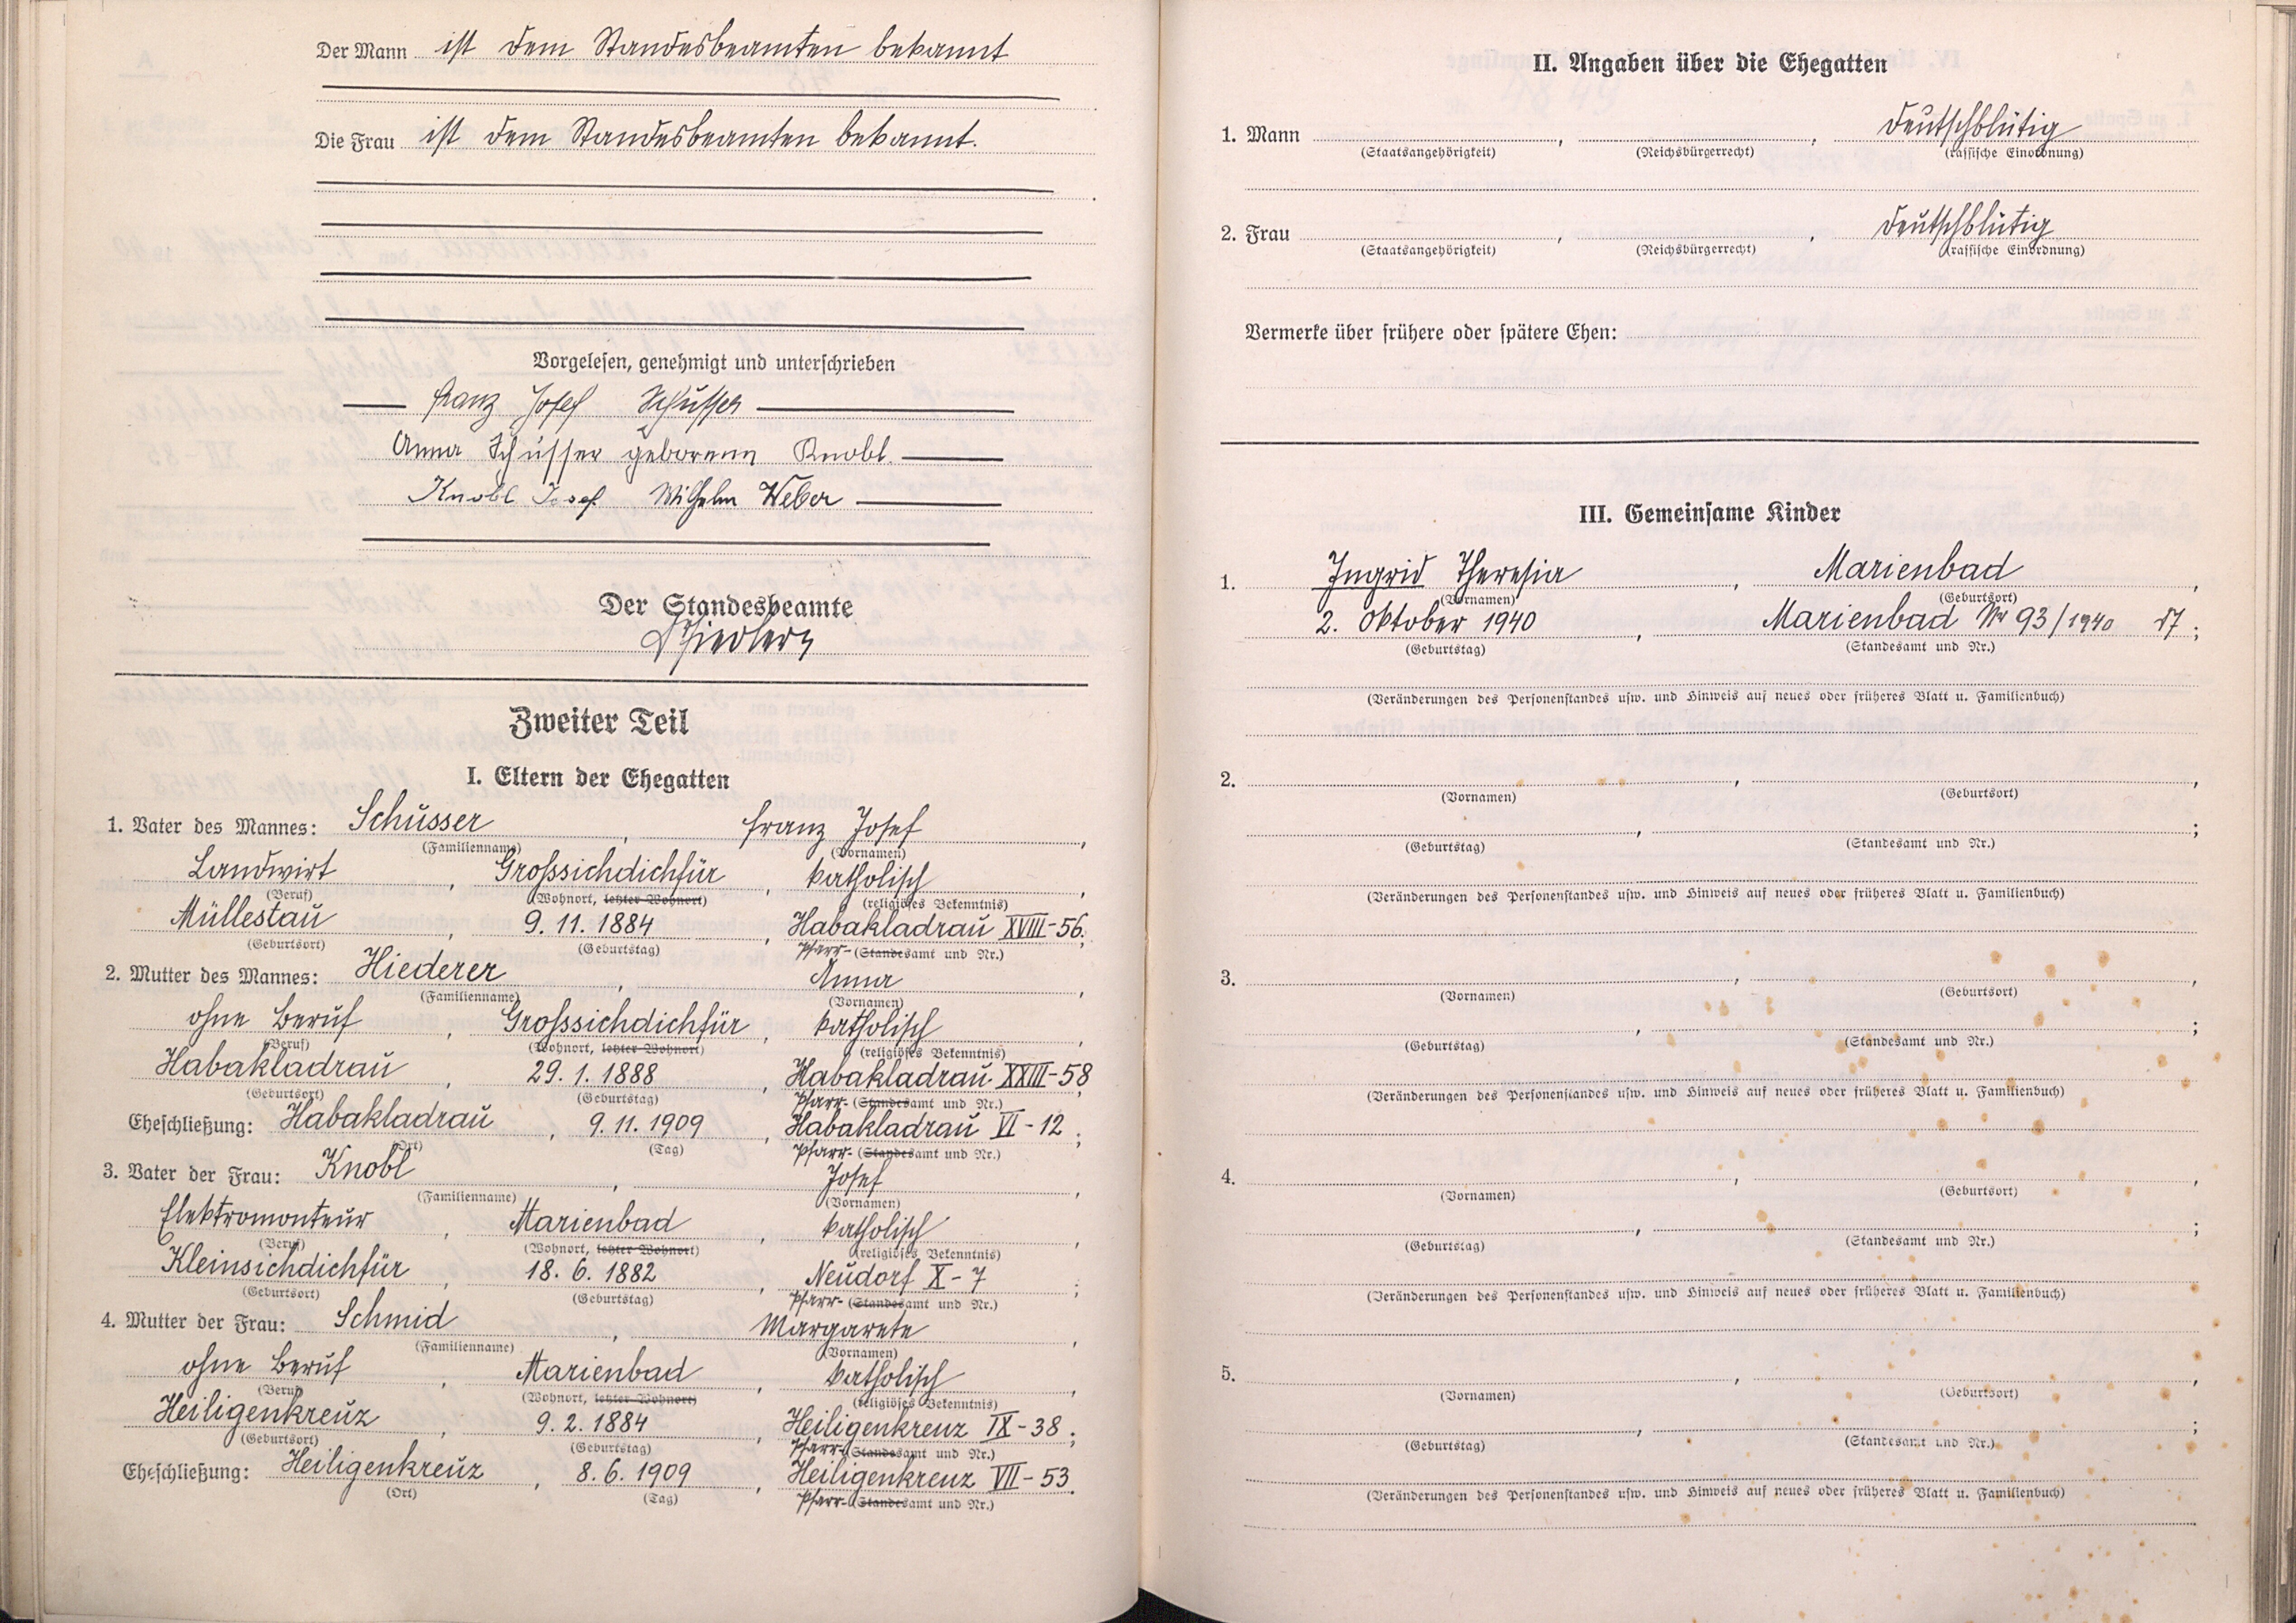 Der Mann ist dem Standesbeamten bekannt
Die Frau ist dem Standesbeamten bekannt.
Vorgelesen, genehmigt und unterschrieben
Franz Josef Schüsser
Anna Schüsser geborenen Knobl.
Knobl Josef Wilhelm Weber
Der Standesbeamte
Zweiter Teil
I. Eltern der Ehegatten
1. Vater des Mannes: Schüsser, Franz Josef,
(Familienname) (Vornamen)
Landwirt, Grossichdichfür, katholisch,
(Beruf) (Wohnort, letzter Wohnort) (religiöses Bekenntnis)
Müllestau, 9. 11. 1884, Habakladrau XVIII-56;
(Geburtsort) (Geburtstag) Pfarr- (Standesamt und Nr.)
2. Mutter des Mannes: Hiederer, Anna,
(Familienname) (Vornamen)
ohne Beruf, Grossichdichfür, katholisch,
(Beruf) (Wohnort, letzter Wohnort) (religiöses Bekenntnis)
Habakladrau, 29. 1. 1888, Habakladrau XXIII-58;
(Geburtsort) (Geburtstag) Pfarr- (Standesamt und Nr.)
Eheschließung: Habakladrau, 9. 11. 1909, Habakladrau VI-12;
(Ort) (Tag) Pfarr- (Standesamt und Nr.)
3. Vater der Frau: Knobl, Josef,
(Familienname) (Vornamen)
Elektromonteur, Marienbad, katholisch,
(Beruf) (Wohnort, letzter Wohnort) (religiöses Bekenntnis)
Kleinsichdichfür, 18. 6. 1882, Neudorf X-7;
(Geburtsort) (Geburtstag) Pfarr- (Standesamt und Nr.)
4. Mutter der Frau: Schmid, Margarete,
(Familienname) (Vornamen)
ohne Beruf, Marienbad, katholisch,
(Beruf) (Wohnort, letzter Wohnort) (religiöses Bekenntnis)
Heiligenkreuz, 9. 2. 1884, Heiligenkreuz IX-38;
(Geburtsort) (Geburtstag) Pfarr- (Standesamt und Nr.)
Eheschließung: Heiligenkreuz, 8. 6. 1909, Heiligenkreuz VII-53.
(Ort) (Tag) Pfarr- (Standesamt und Nr.)
II. Angaben über die Ehegatten
1. Mann , , deutschblütig
(Staatsangehörigkeit) (Reichsbürgerrecht) (rassische Einordnung)
2. Frau , , deutschblütig
(Staatsangehörigkeit) (Reichsbürgerrecht) (rassische Einordnung)
Vermerke über frühere oder spätere Ehen:
III. Gemeinsame Kinder
1. Ingrid Theresia, Marienbad,
(Vornamen) (Geburtsort)
2. Oktober 1940, Marienbad Nr 93/1940;
(Geburtstag) (Standesamt und Nr.)
(Veränderungen des Personenstandes usw. und Hinweis auf neues oder früheres Blatt u. Familienbuch)
2. , ,
(Vornamen) (Geburtsort)
, ;
(Geburtstag) (Standesamt und Nr.)
(Veränderungen des Personenstandes usw. und Hinweis auf neues oder früheres Blatt u. Familienbuch)
3. , ,
(Vornamen) (Geburtsort)
, ;
(Geburtstag) (Standesamt und Nr.)
(Veränderungen des Personenstandes usw. und Hinweis auf neues oder früheres Blatt u. Familienbuch)
4. , ,
(Vornamen) (Geburtsort)
, ;
(Geburtstag) (Standesamt und Nr.)
(Veränderungen des Personenstandes usw. und Hinweis auf neues oder früheres Blatt u. Familienbuch)
5. , ,
(Vornamen) (Geburtsort)
, ;
(Geburtstag) (Standesamt und Nr.)
(Veränderungen des Personenstandes usw. und Hinweis auf neues oder früheres Blatt u. Familienbuch)